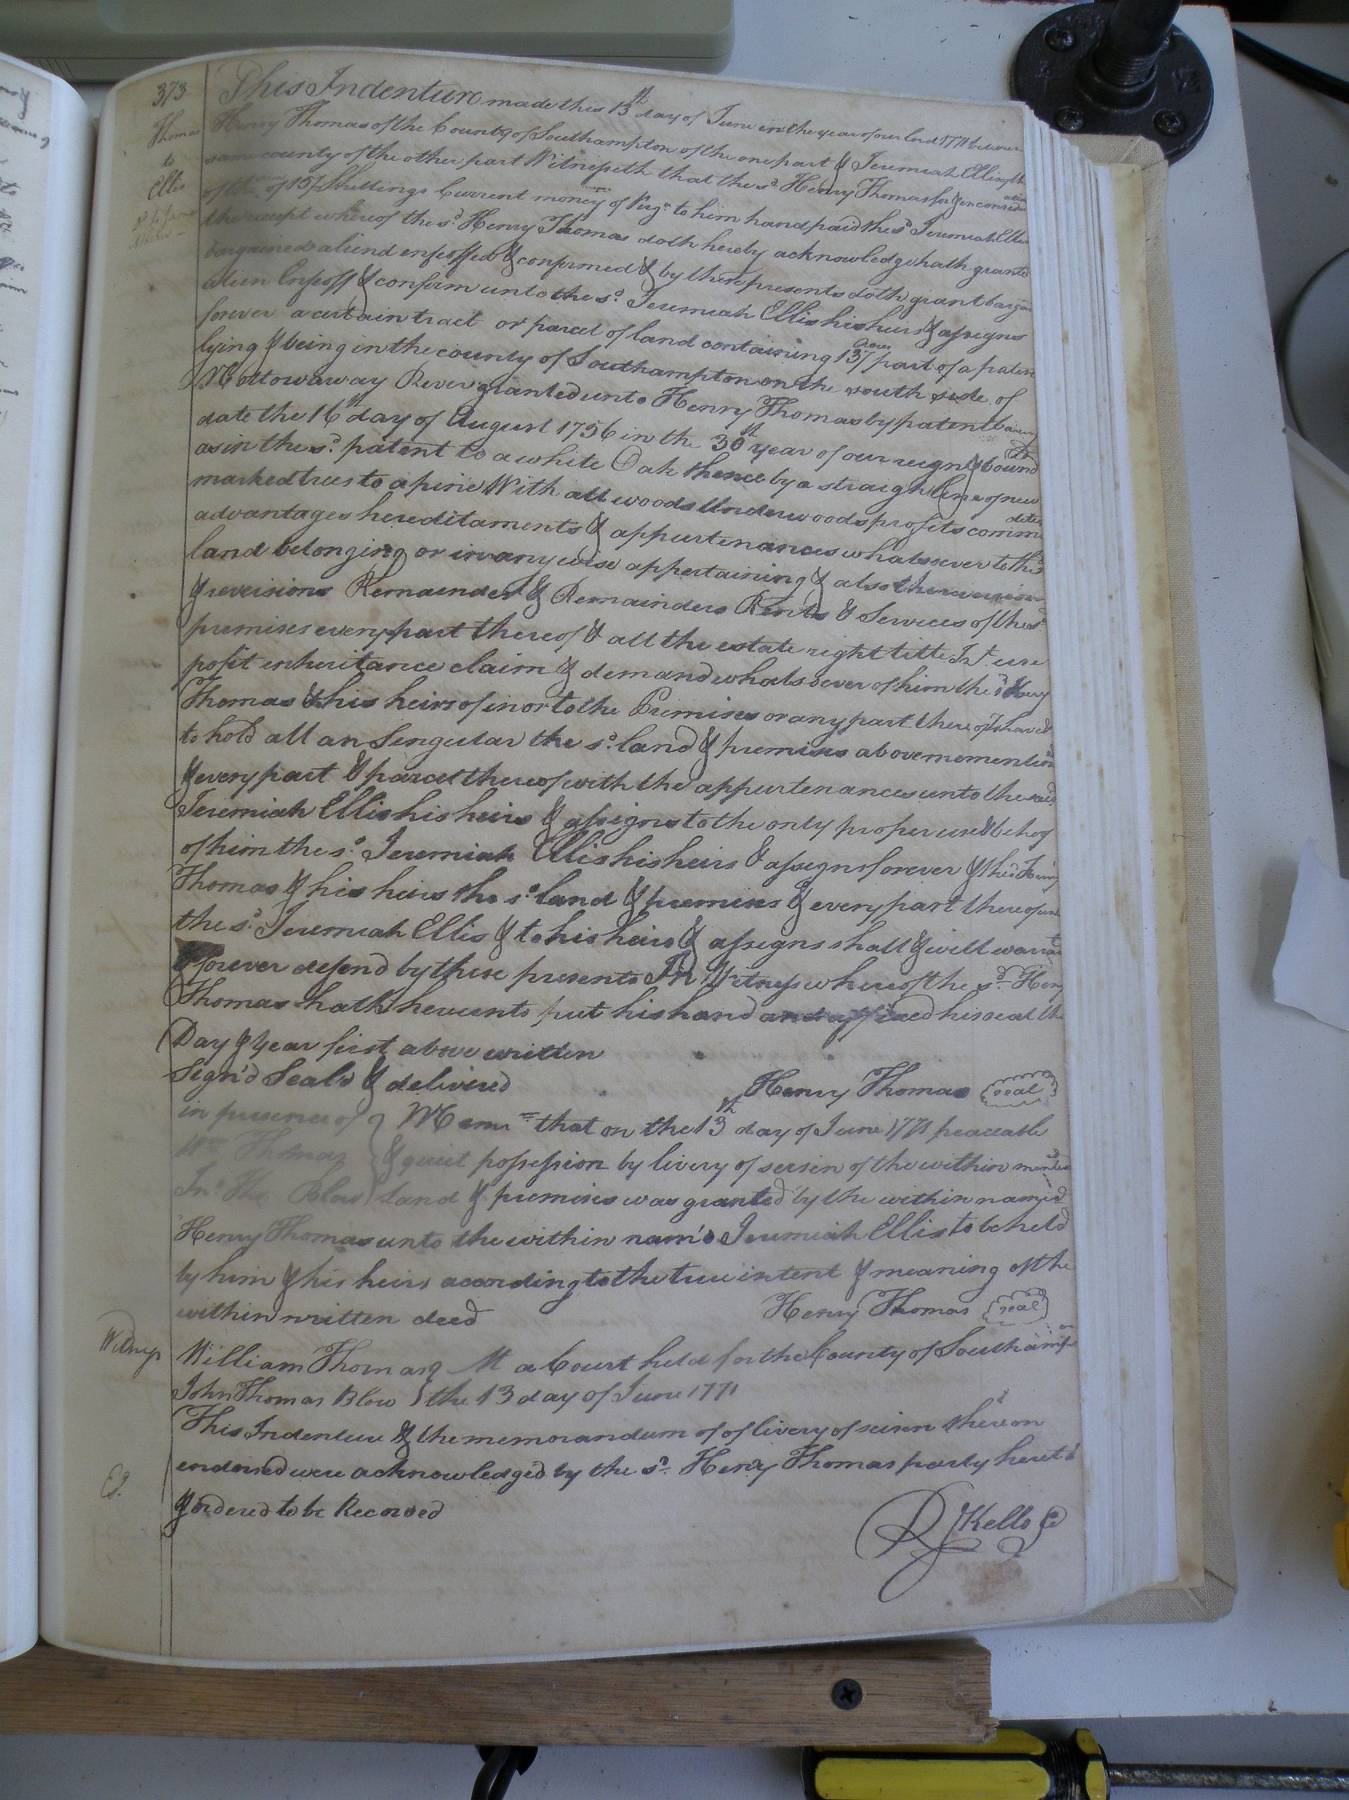 373
Thomas
to
Ellis
This Indenture made this 13th day of June in the year of our lord 1771 between
Henry Thomas of the County of Southampton of the one part & Jeremiah Ellis of the
same county of the other part Witnesseth that the sd. Henry Thomas for & in consideration
of the of 15/ Shillings Current money of Virga. to him hand paid the sd. Jeremiah Ellis
the receipt whereof the sd. Henry Thomas doth hereby acknowledge hath granted
bargained aliend enfeoffed & confirmed & by these presents doth grant bargain
alien Enfeoff & confirm unto the sd. Jeremiah Ellis his heirs & assigns
forever a certain tract or parcel of land containing 137 acres part of a patent
lying & being in the county of Southampton on the south side of
Nottowaway River granted unto Henry Thomas by patent bearing
date the 16th day of August 1756 in the 30th year of our reign & bound
as in the sd. patent to a white Oak thence by a straight line of new
marked trees to a pine With all woods Underwoods profits commodities
advantages hereditaments & appurtenances whatsoever to the sd
land belonging or in anywise appertaining & also the reversion
& reversions Remainder & Remainders Rents & Services of the sd
premises every part thereof & all the estate right title Int. use
profit inheritance claim & demand whatsoever of him the sd Henry
Thomas & his heirs of in or to the Premises or any part thereof To have &
to hold all an Singular the sd. land & premises above mentiond
& every part & parcel thereof with the appurtenances unto the said
Jeremiah Ellis his heirs & assigns to the only proper use & behoof
of him the sd. Jeremiah Ellis his heirs & assigns forever & the sd Henry
Thomas & his heirs the sd. land & premises & every part thereof unto
the sd. Jeremiah Ellis & to his heirs & assigns shall & will warrant
& forever defend by these presents In Witness whereof the sd. Henry
Thomas hath hereunto put his hand and affixed his seal the
Day & Year first above written
Sign'd Seal'd & delivered
Henry Thomas seal
in presence of
Wm Thomas
Jno Tho Blow
Memm. that on the 13th day of June 1771 peaceable
& quiet possession by livery of seisen of the within mentiond
land & premises was granted by the within named
Henry Thomas unto the within nam'd Jeremiah Ellis to be held
by him & his heirs according to the true intent & meaning of the
within written deed
Henry Thomas seal
Witness
William Thomas
John Thomas Blow
At a Court held for the County of Southampton
the 13 day of June 1771
This Indenture & the memorandum of of livery of seisen thereon
endorsed were acknowledged by the sd. Henry Thomas party hereto
Ex.
& ordered to be Recorded
R Kello C